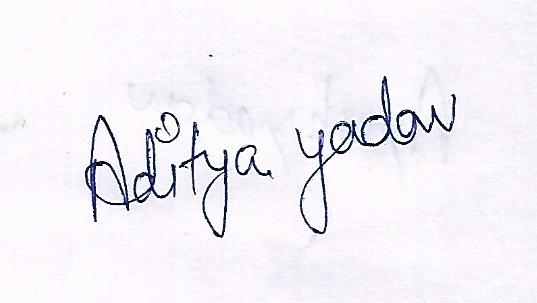 Aditya yadav